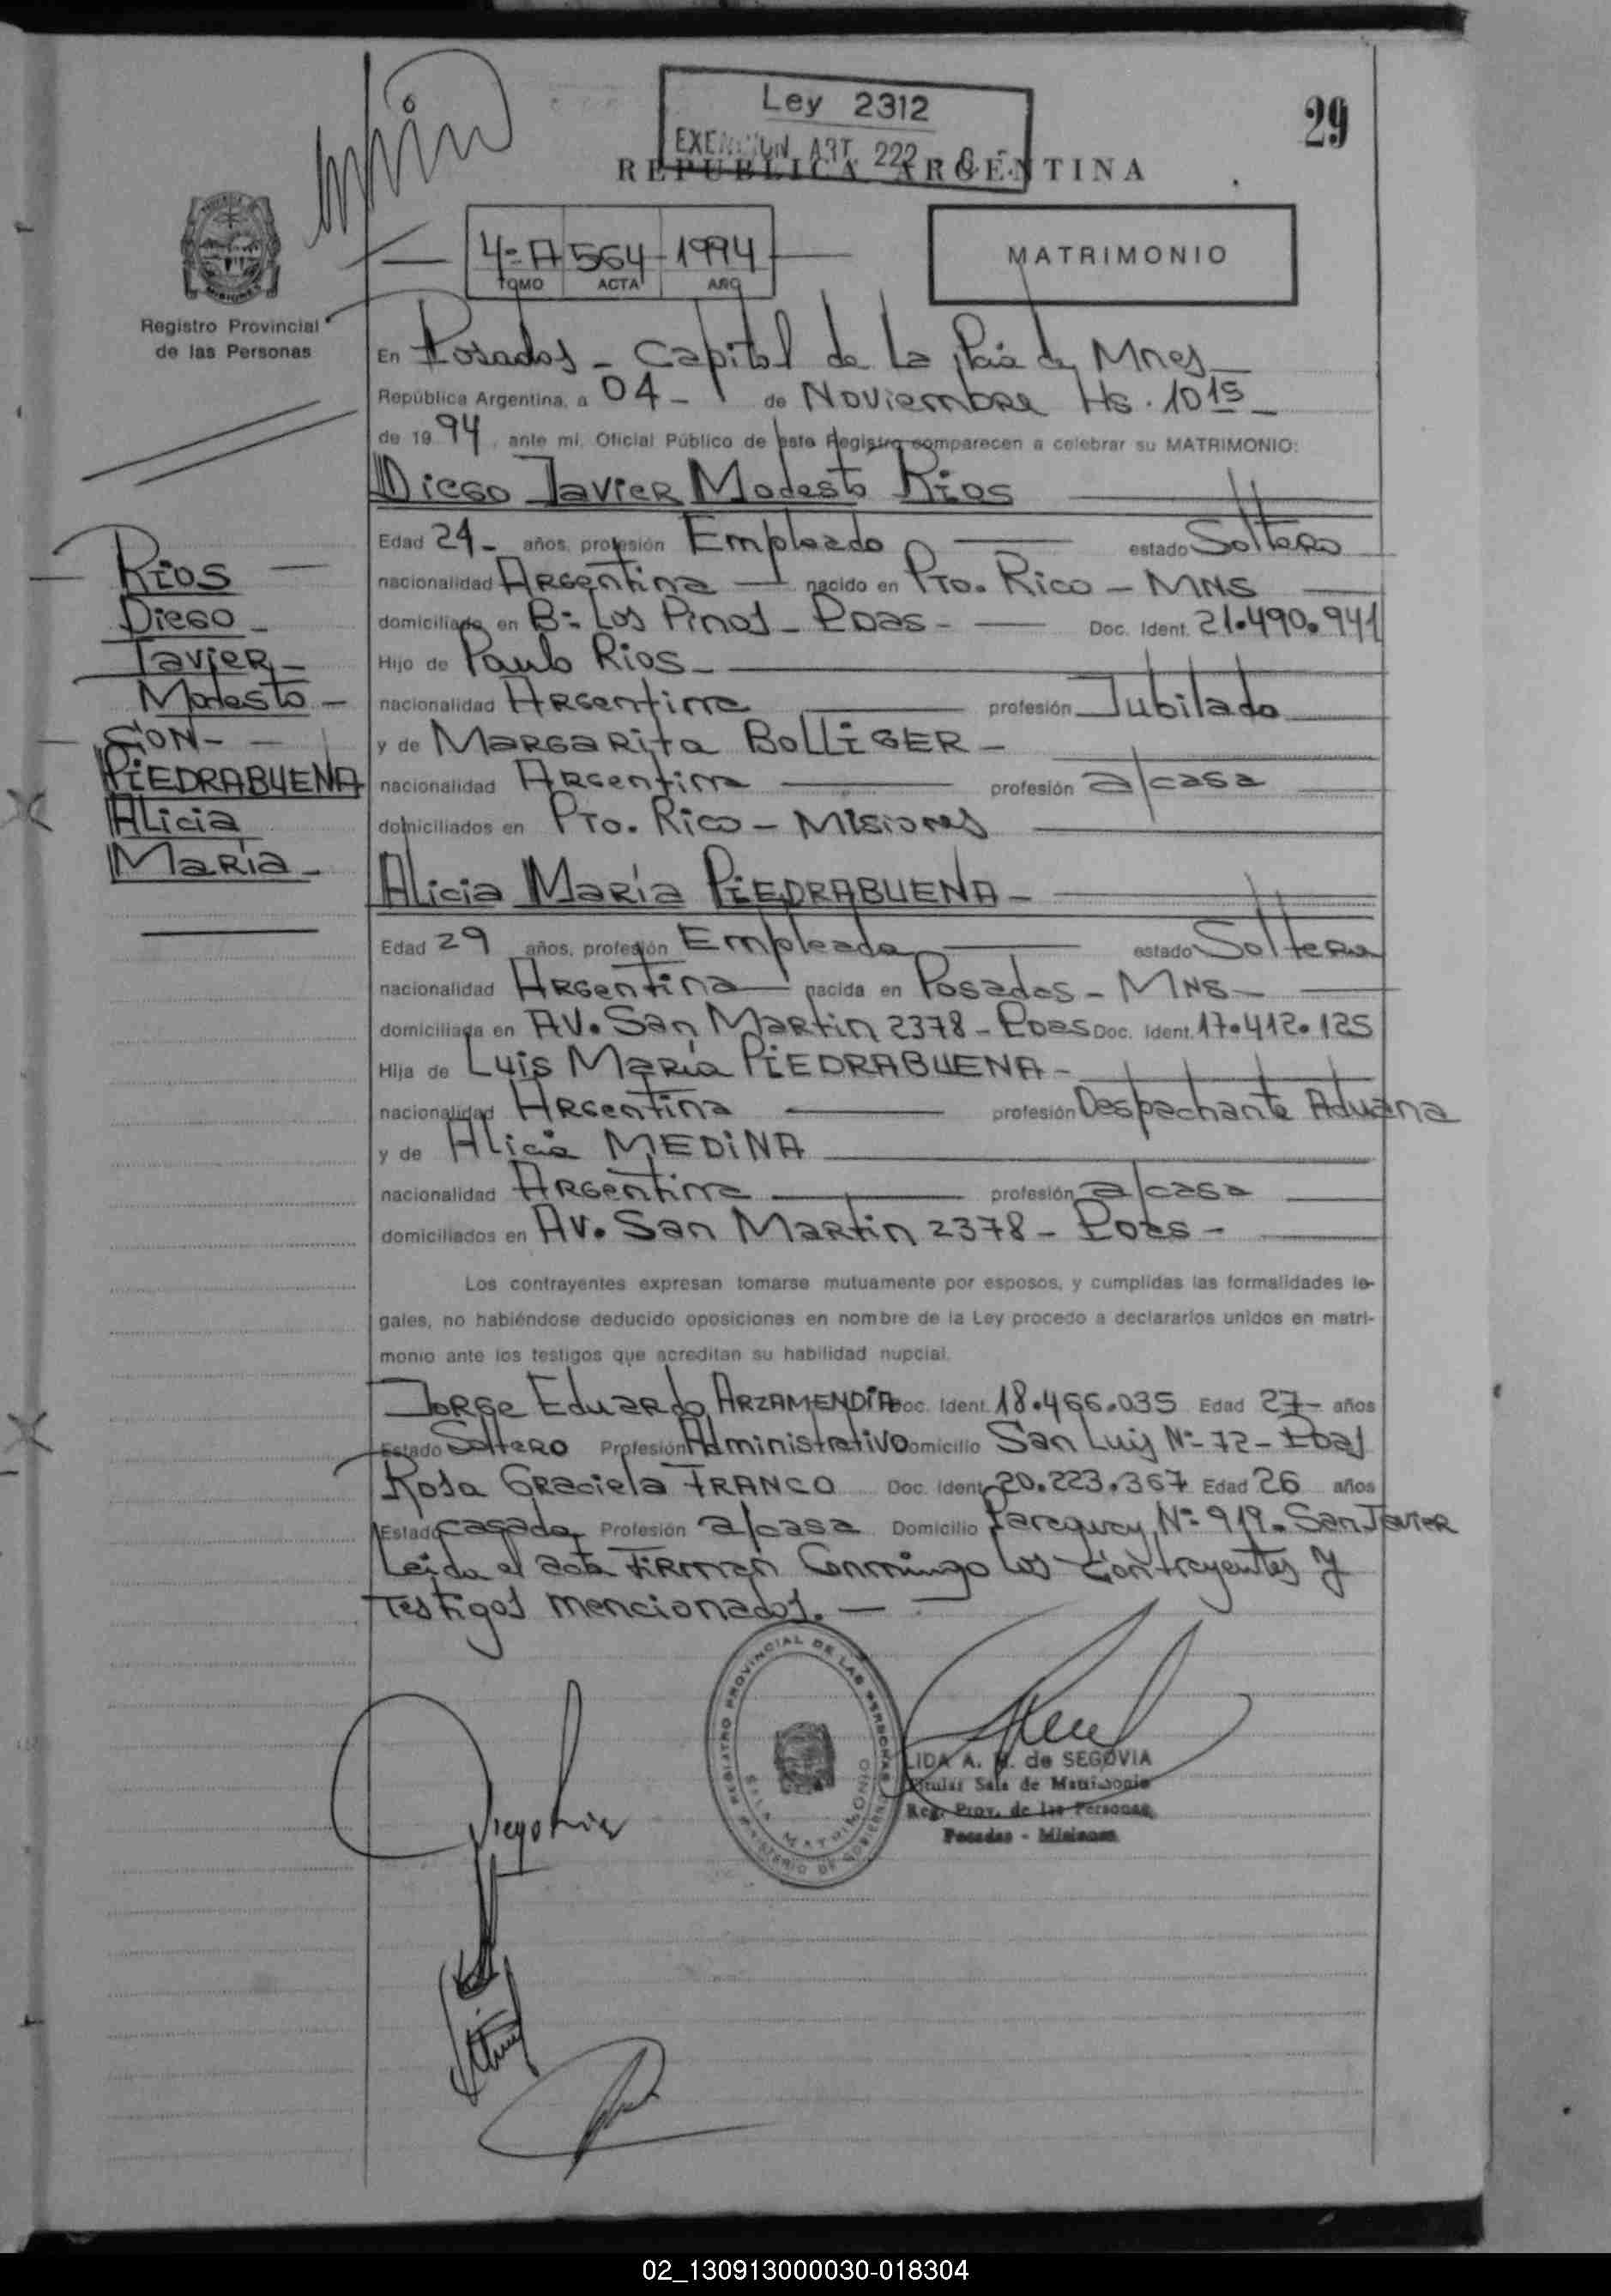 Ley 2312
EXENCION ART. 222
29
REPUBLICA ARGENTINA
4º A 564 1994
TOMO ACTA AÑO
MATRIMONIO
Registro Provincial
de las Personas
En Posadas - Capital de La Pcia de Mnes
República Argentina, a 04 - de Noviembre Hs. 10 15
de 1994, ante mi, Oficial Público de este Registro comparecen a celebrar su MATRIMONIO:
Diego Javier Modesto Rios
Edad 24 - años, profesión Empleado estado Soltero
nacionalidad Argentina nacido en Pto. Rico - MNS
domiciliado en Bº Los Pinos - Pdas - Doc. Ident. 21.490.941
Hijo de Paulo Rios -
nacionalidad Argentina profesión Jubilado
y de Margarita BolliGER -
nacionalidad Argentina profesión a/casa
domiciliados en Pto. Rico - Misiones
Rios
Diego -
Javier -
Modesto -
CON -
PIEDRABUENA
Alicia
María -
Alicia María PIEDRABUENA -
Edad 29 años, profesión Empleada estado Soltera
nacionalidad Argentina nacida en Posadas - MNS -
domiciliada en AV. San Martin 2378 - Pdas Doc. Ident. 17.412.125
Hija de Luis María PIEDRABUENA -
nacionalidad Argentina profesión Despachante Aduana
y de Alicia MEDINA
nacionalidad Argentina profesión a/casa
domiciliados en AV. San Martin 2378 - Pdas -
Los contrayentes expresan tomarse mutuamente por esposos, y cumplidas las formalidades le-
gales, no habiéndose deducido oposiciones en nombre de la Ley procedo a declararlos unidos en matri-
monio ante los testigos que acreditan su habilidad nupcial.
Jorge Eduardo ARZAMENDIA Doc. Ident. 18.466.035 Edad 27 - años
Estado Soltero Profesión Administrativo Domicilio San Luis Nº 72 - Pdas
Rosa Graciela FRANCO Doc. Ident. 20.223.367 Edad 26 años
Estado casada Profesión a/casa Domicilio Paraguay Nº 919. San Javier
Leida el acta Firman Conmingo los Contrayentes y
Testigos mencionados. -
REGISTRO PROVINCIAL DE LAS PERSONAS
SALA MATRIMONIO
MINISTERIO DE GOBIERNO
LIDA A. de SEGOVIA
Titular Sala de Matrimonio
Reg. Prov. de las Personas
Posadas - Misiones
Diego Rios
02_130913000030-018304